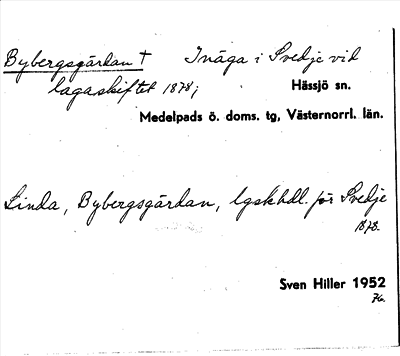 Bybergsgärdan † Inäga i Svedje vid
lagaskiftet 1878;
Hässjö sn.
Medelpads ö. doms. tg, Västernorrl. län.
Linda, Bybergsgärdan, lgskhdl. för Svedje
1878.
Sven Hiller 1952